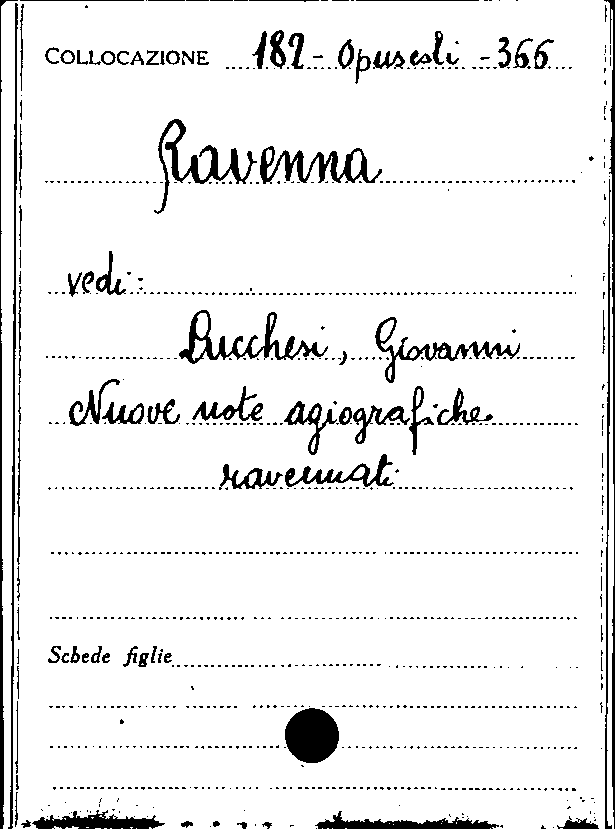 COLLOCAZIONE 182 - Opuscoli - 366
Ravenna
vedi:
Lucchesi, Giovanni
Nuove note agiografiche
ravennati
Schede figlie